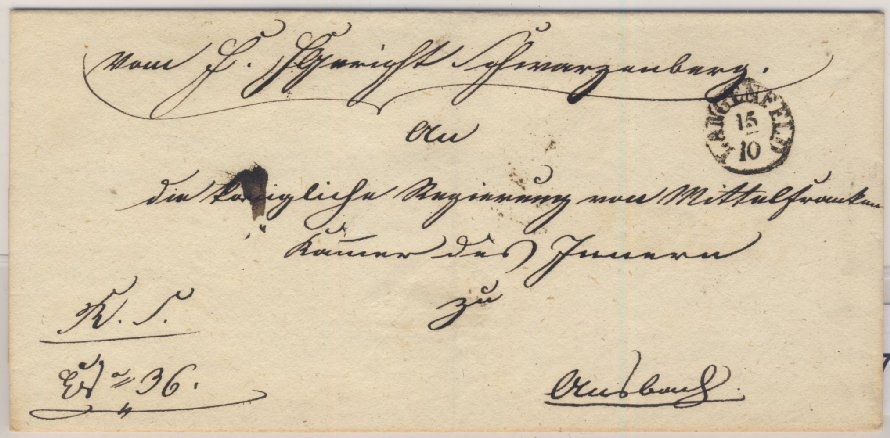 Vom H. HGericht Schwarzenberg.
LANGENFELD
15
10
An
die königliche Regierung von Mittelfranken
Kammer des Innern
zu
R. S.
36.
Ansbach